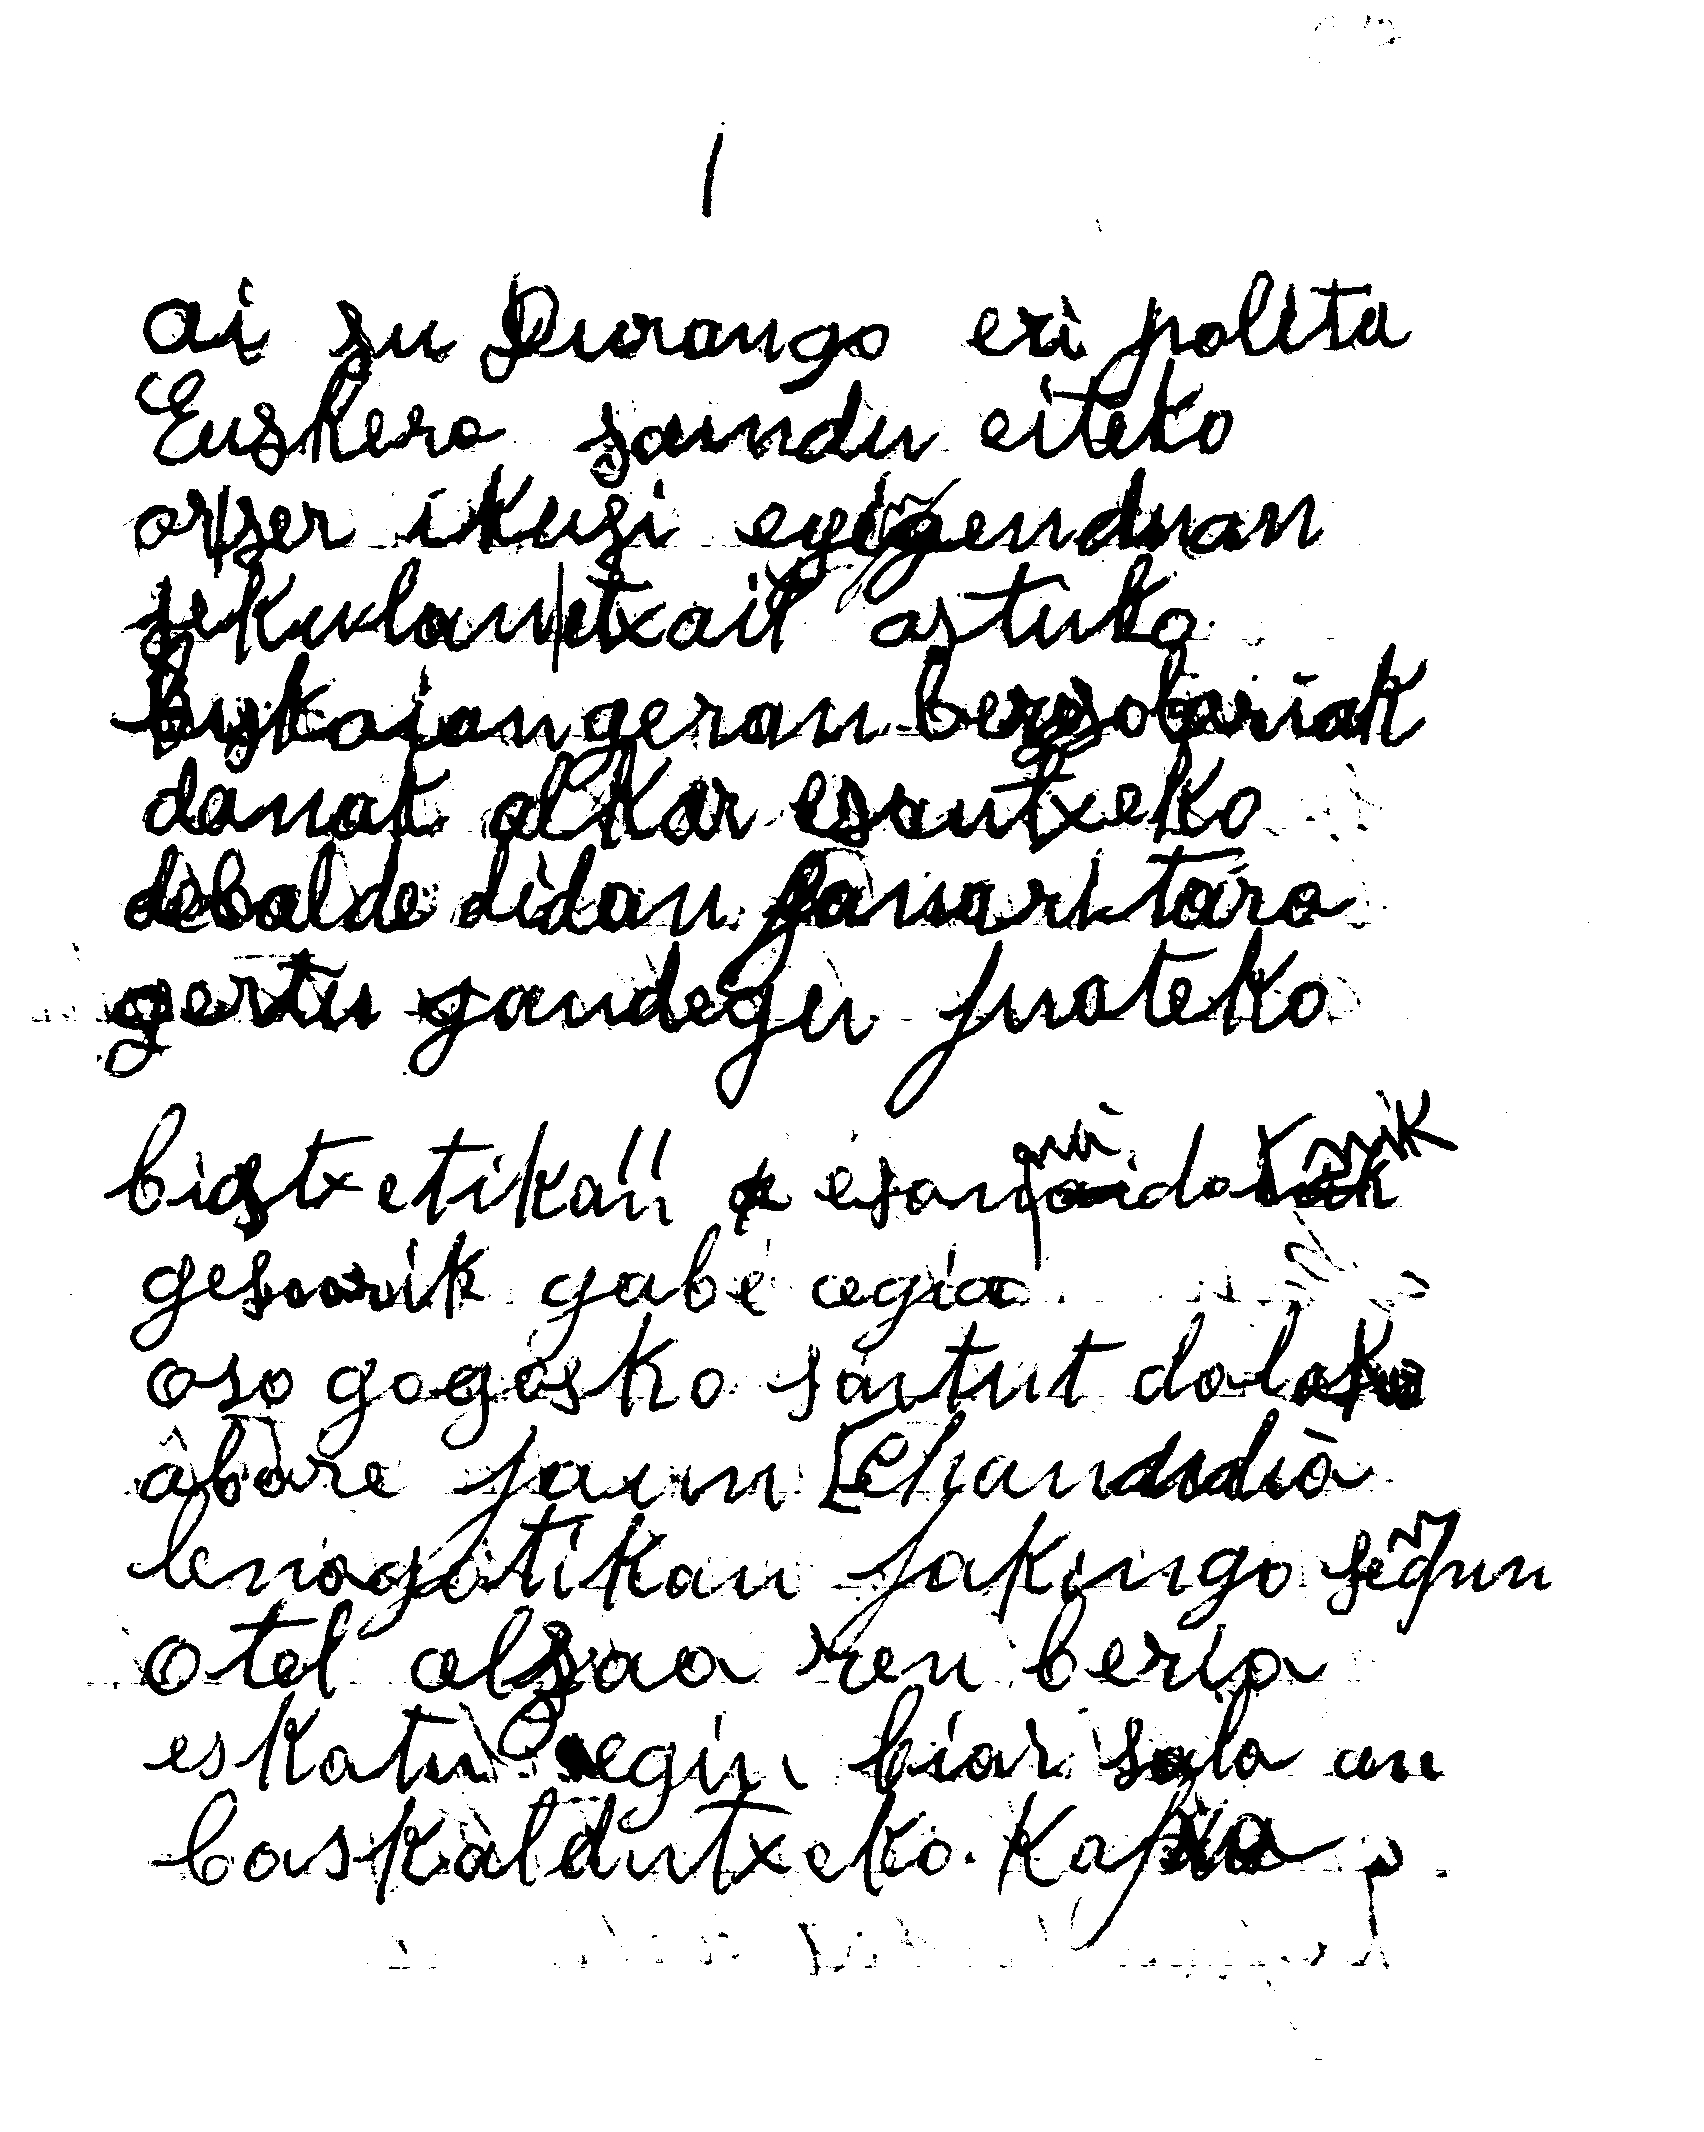 1
ai su Durango eri polita
Euskera saindu eiteko
or ser ikusi egigenduan
sekulan etxait astuko
biskaiangeran bersolariak
danak alkar esautxeko
debalde didan jansaritara
gertu gandegu juateko
biostxetikan esan nai dotsanik
gesurik gabe egia
oso gogosko sartut dalako
abare jaun Echandia
lenagotikan jakingo segun
otel alsaa ren beria
eskatu egin biar sala an
baskaldutxeko